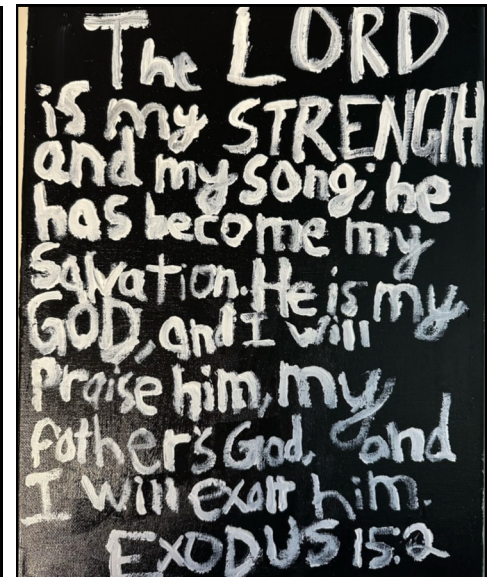 The LORD
is my STRENGTH
and my song; he
has become my
Salvation. He is my
GOD, and I will
Praise him, my
father's God, and
I will exalt him.
EXODUS 15:2